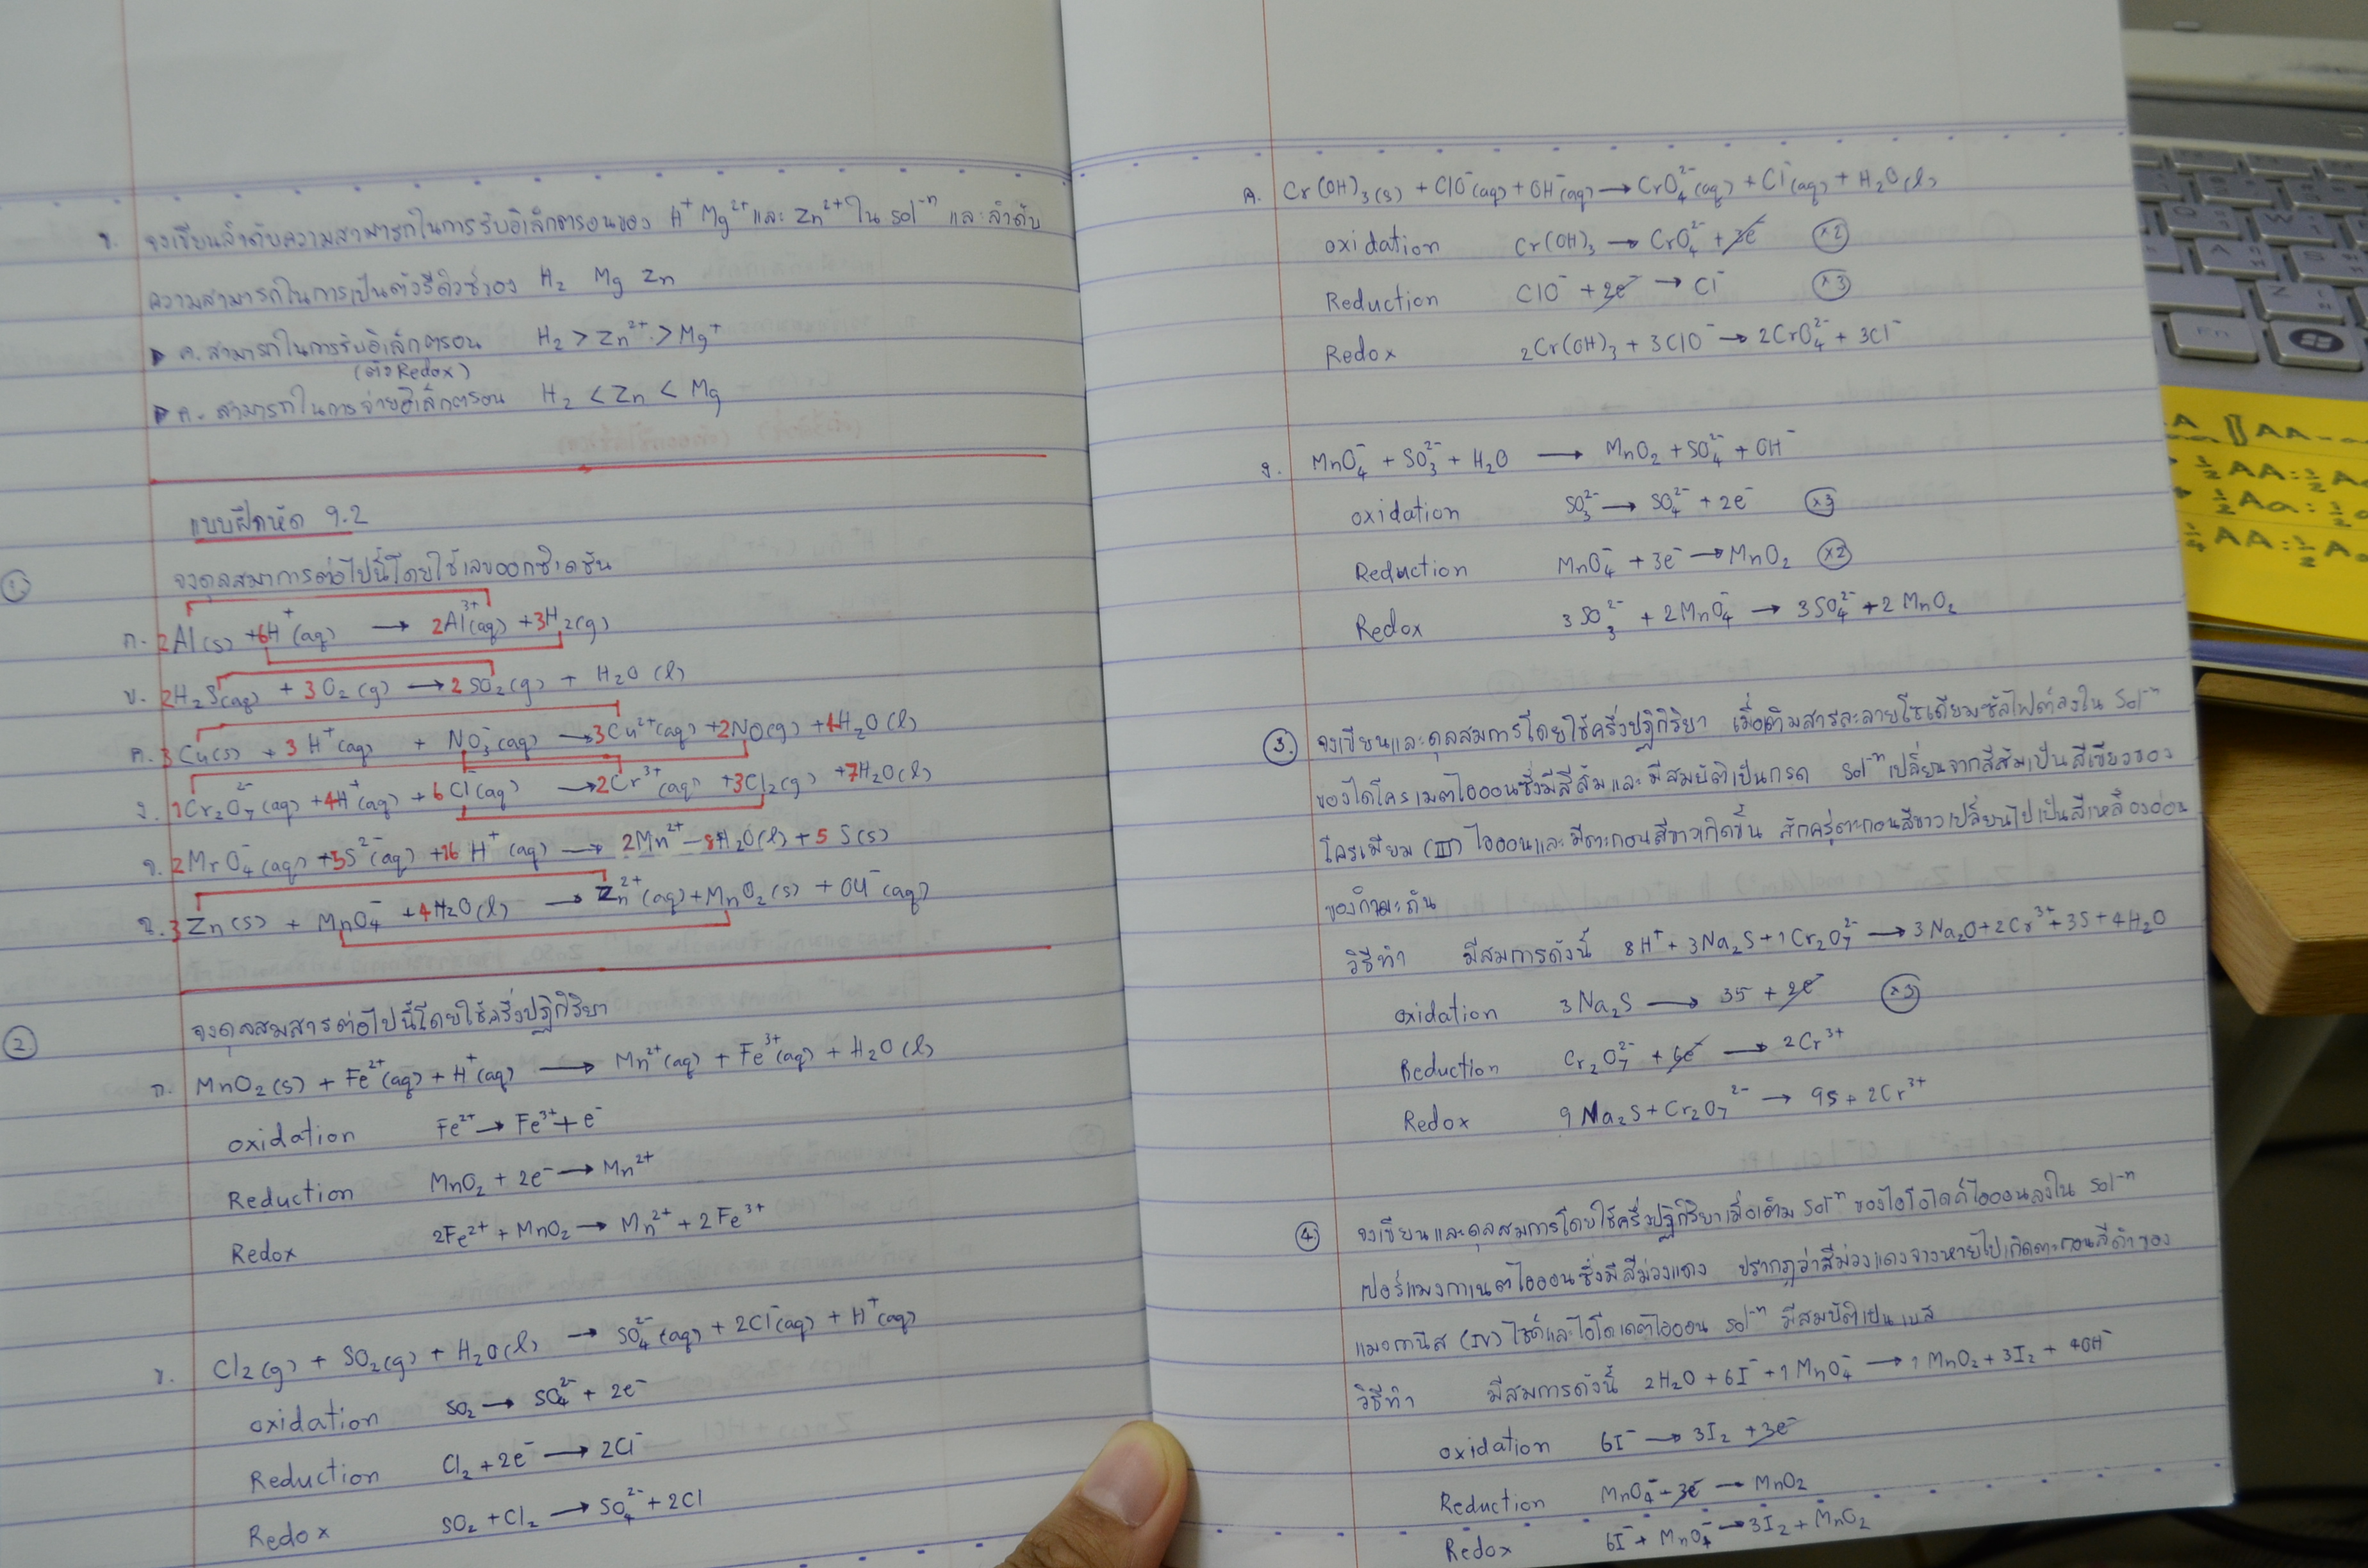 ข. จงเขียนลำดับความสามารถในการรับอิเล็กตรอนของ H⁺ Mg²⁺ และ Zn²⁺ ใน sol⁻ⁿ และลำดับ
ความสามารถในการเป็นตัวรีดิวซ์ของ H₂ Mg Zn
ค.สามารถในการรับอิเล็กตรอน H₂ > Zn²⁺ > Mg⁺
(ตัวRedox)
ค.สามารถในการจ่ายอิเล็กตรอน H₂ < Zn < Mg
แบบฝึกหัด 9.2
① จงดุลสมาการต่อไปนี้โดยใช้เลขออกซิเดชัน
ก. 2Al(s) + 6H⁺(aq) → 2Al³⁺(aq) + 3H₂(g)
ข. 2H₂S(aq) + 3O₂(g) → 2SO₂(g) + H₂O(l)
ค. 3Cu(s) + 3H⁺(aq) + NO₃⁻(aq) → 3Cu²⁺(aq) + 2NO(g) + 4H₂O(l)
ง. 1Cr₂O₇²⁻(aq) + 4H⁺(aq) + 6Cl⁻(aq) → 2Cr³⁺(aq) + 3Cl₂(g) + 7H₂O(l)
จ. 2MnO₄⁻(aq) + 5S²⁻(aq) + 16H⁺(aq) → 2Mn²⁺ – 8H₂O(l) + 5S(s)
ฉ. 3Zn(s) + MnO₄⁻ + 4H₂O(l) → Zn²⁺(aq) + MnO₂(s) + OH⁻(aq)
② จงดุลสมสารต่อไปนี้โดยใช้ครึ่งปฏิกิริยา
ก. MnO₂(s) + Fe²⁺(aq) + H⁺(aq) → Mn²⁺(aq) + Fe³⁺(aq) + H₂O(l)
oxidation Fe²⁺ → Fe³⁺ + e⁻
Reduction MnO₂ + 2e⁻ → Mn²⁺
Redox 2Fe²⁺ + MnO₂ → Mn²⁺ + 2Fe³⁺
ข. Cl₂(g) + SO₂(g) + H₂O(l) → SO₄²⁻(aq) + 2Cl⁻(aq) + H⁺(aq)
oxidation SO₂ → SO₄²⁻ + 2e⁻
Reduction Cl₂ + 2e⁻ → 2Cl⁻
Redox SO₂ + Cl₂ → SO₄²⁻ + 2Cl
ค. Cr(OH)₃(s) + ClO⁻(aq) + OH⁻(aq) → CrO₄²⁻(aq) + Cl⁻(aq) + H₂O(l)
oxidation Cr(OH)₃ → CrO₄²⁻ + 3e⁻ ×2
Reduction ClO⁻ + 2e⁻ → Cl⁻ ×3
Redox 2Cr(OH)₃ + 3ClO⁻ → 2CrO₄²⁻ + 3Cl⁻
ง. MnO₄⁻ + SO₃²⁻ + H₂O → MnO₂ + SO₄²⁻ + OH⁻
oxidation SO₃²⁻ → SO₄²⁻ + 2e⁻ ×3
Reduction MnO₄⁻ + 3e⁻ → MnO₂ ×2
Redox 3SO₃²⁻ + 2MnO₄⁻ → 3SO₄²⁻ + 2MnO₂
③ จงเขียนและดุลสมการโดยใช้ครึ่งปฏิกิริยา เมื่อเติมสารละลายโซเดียมซัลไฟต์ลงใน Sol⁻ⁿ
ของไดโครเมตไอออนซึ่งมีสีส้มและมีสมบัติเป็นกรด Sol⁻ⁿ เปลี่ยนจากสีส้มเป็นสีเขียวของ
โครเมียม (III) ไอออนและมีตะกอนสีขาวเกิดขึ้น สักครู่ตะกอนสีขาวเปลี่ยนไปเป็นสีเหลืองอ่อน
ของกำมะถัน
วิธีทำ มีสมการดังนี้ 8H⁺ + 3Na₂S + 1Cr₂O₇²⁻ → 3Na₂O + 2Cr³⁺ + 3S + 4H₂O
oxidation 3Na₂S → 3S + 2e⁻ ×3
Reduction Cr₂O₇²⁻ + 6e⁻ → 2Cr³⁺
Redox 9Na₂S + Cr₂O₇²⁻ → 9S + 2Cr³⁺
④ จงเขียนและดุลสมการโดยใช้ครึ่งปฏิกิริยาเมื่อเติม Sol⁻ⁿ ของไอโอไดด์ไอออนลงใน Sol⁻ⁿ
เปอร์แมงกาเนตไอออนซึ่งมีสีม่วงแดง ปรากฏว่าสีม่วงแดงจางหายไปเกิดตะกอนสีดำของ
แมงกานีส (IV) ไซด์และไอโดเดตไอออน sol⁻ⁿ มีสมบัติเป็นเบส
วิธีทำ มีสมการดังนี้ 2H₂O + 6I⁻ + 1MnO₄⁻ → 1MnO₂ + 3I₂ + 4OH⁻
oxidation 6I⁻ → 3I₂ + 3e⁻
Reduction MnO₄⁻ – 3e⁻ → MnO₂
Redox 6I⁻ + MnO₄⁻ → 3I₂ + MnO₂
Fn
½ AA = ½
½ Aa = ½
¼ AA = ½